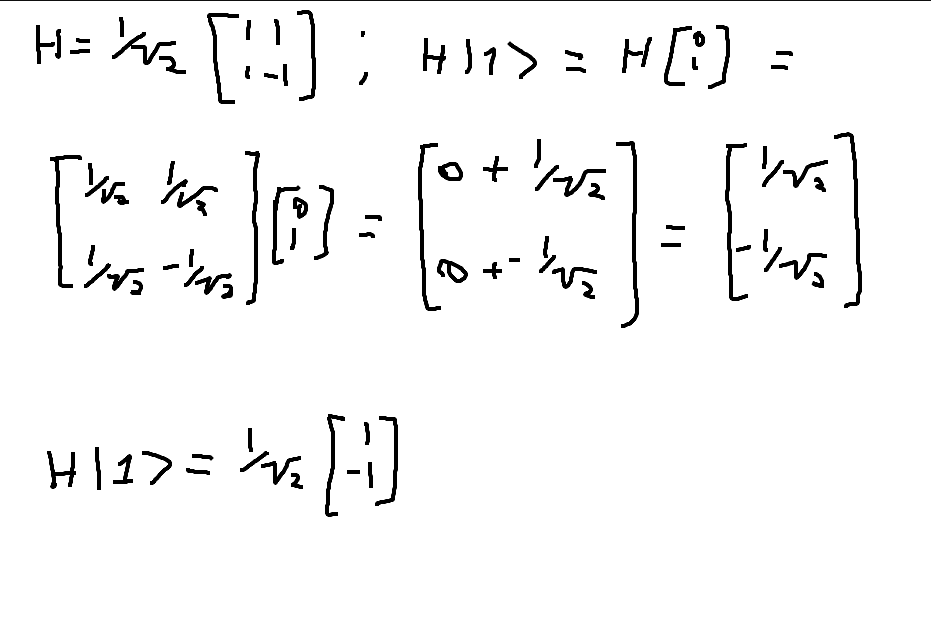 H = 1/√2 [1 1; 1 -1] ; H|1> = H[0; 1] =
[1/√2 1/√2; 1/√2 -1/√2][0; 1] = [0 + 1/√2; 0 + - 1/√2] = [1/√2; -1/√2]
H|1> = 1/√2 [1; -1]